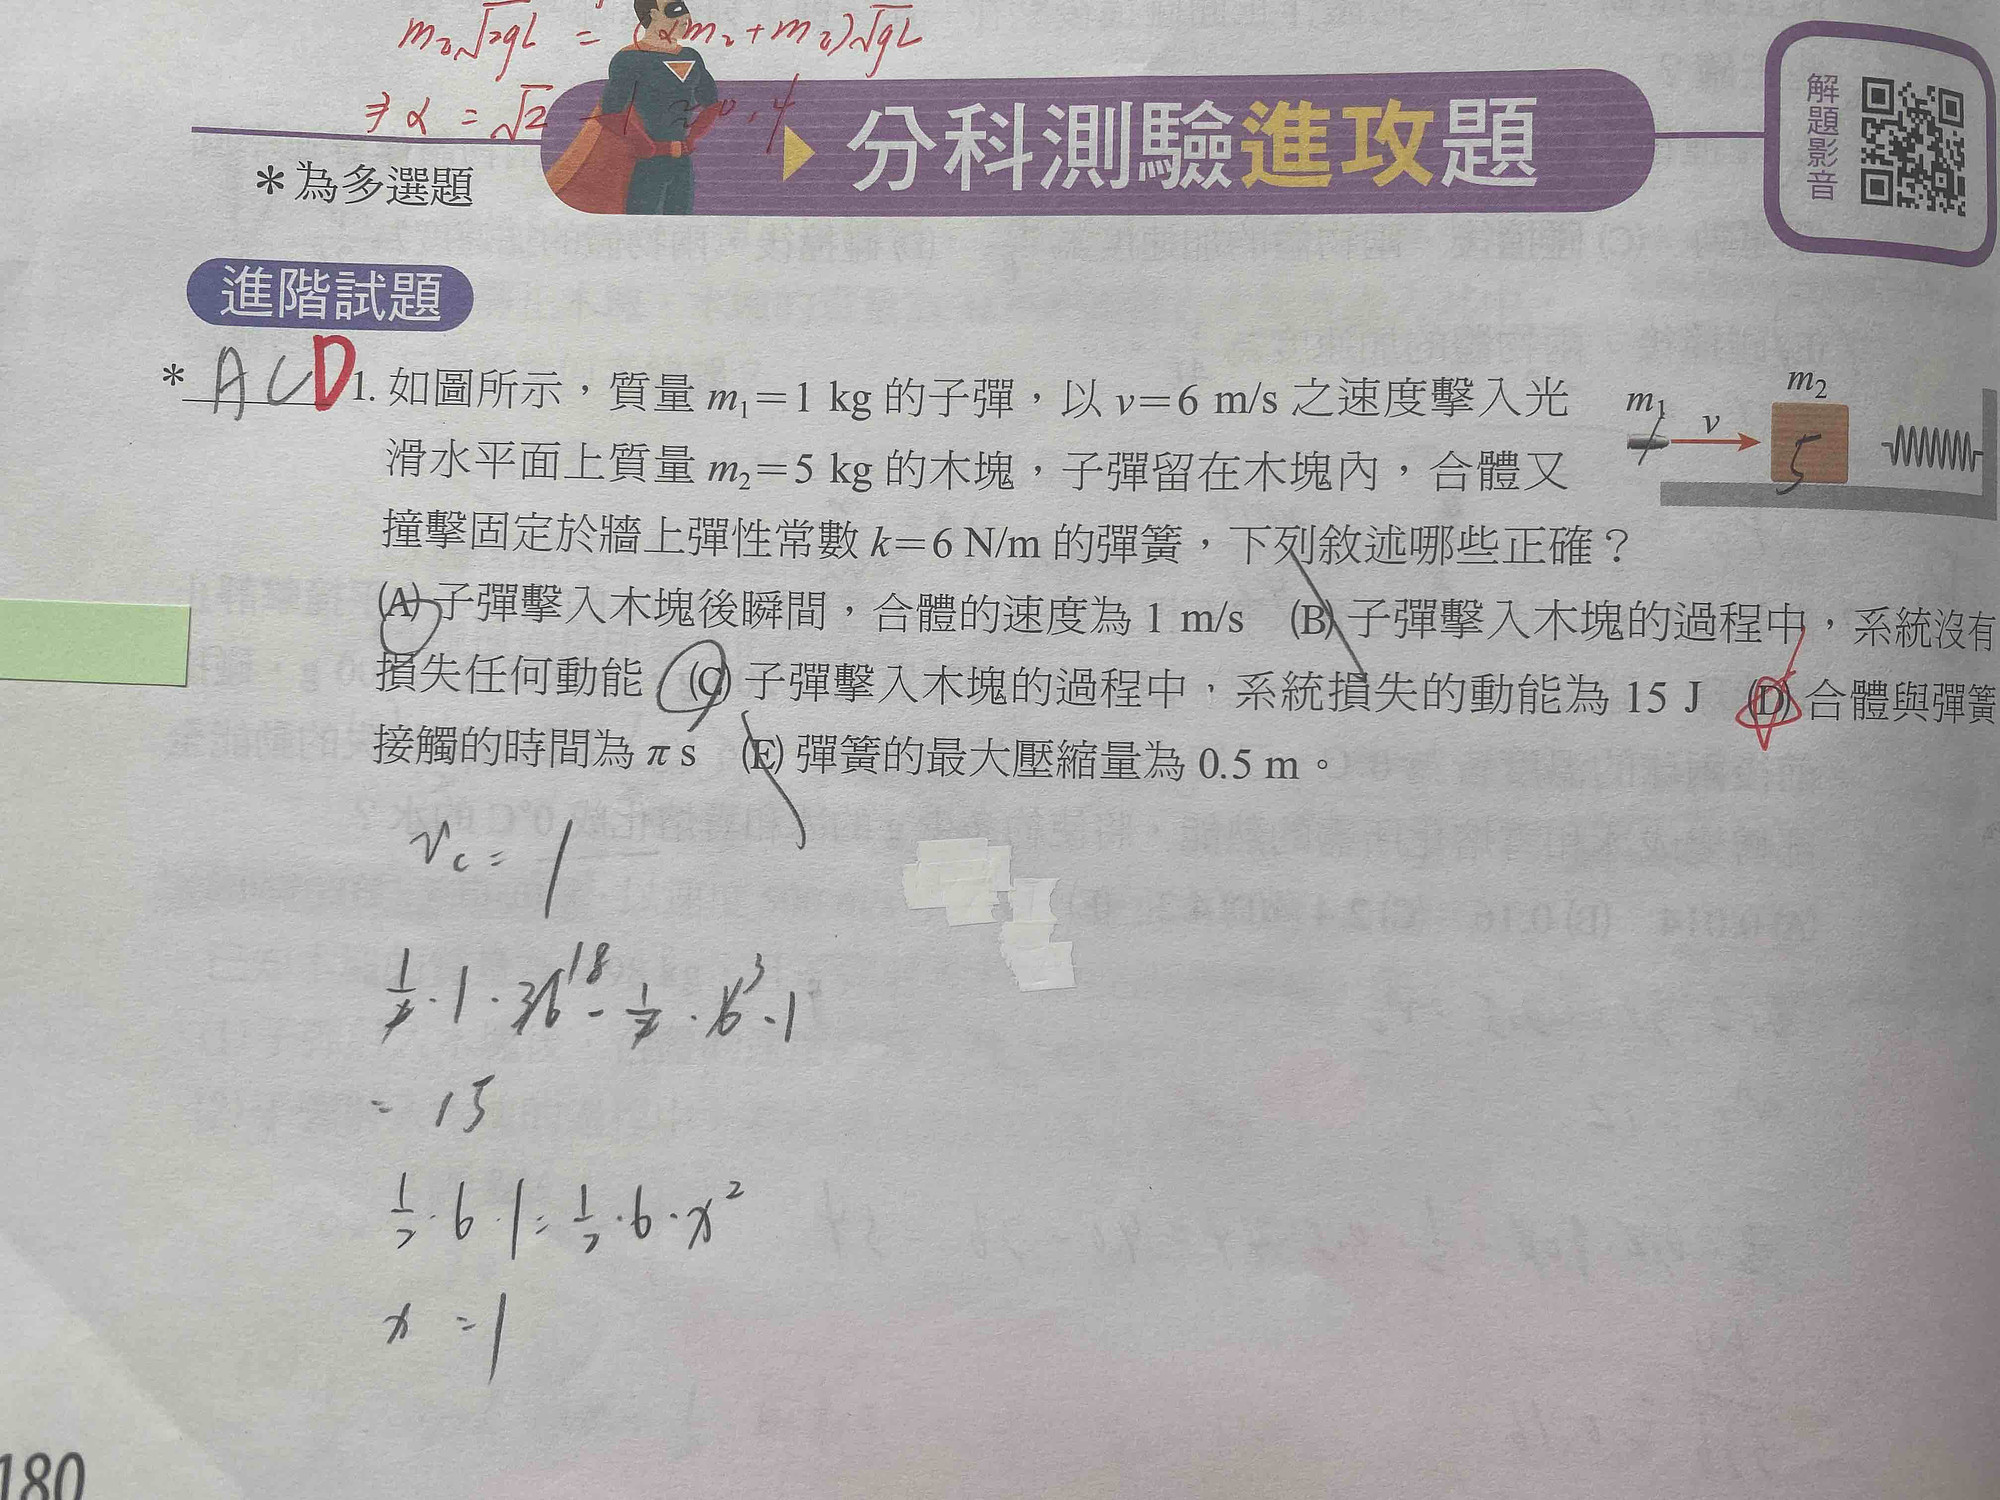 m₂√2gL = (αm₂+m₂)√gL
⇒ α = √2 - 1 ≈ 0.4
分科測驗進攻題
解題影音
*為多選題
進階試題
* ACD 1. 如圖所示，質量 m₁＝1 kg 的子彈，以 v＝6 m/s 之速度擊入光
滑水平面上質量 m₂＝5 kg 的木塊，子彈留在木塊內，合體又
撞擊固定於牆上彈性常數 k＝6 N/m 的彈簧，下列敘述哪些正確？
(A) 子彈擊入木塊後瞬間，合體的速度為 1 m/s (B) 子彈擊入木塊的過程中，系統沒有
損失任何動能 (C) 子彈擊入木塊的過程中，系統損失的動能為 15 J (D) 合體與彈簧
接觸的時間為 π s (E) 彈簧的最大壓縮量為 0.5 m。
m₁ v m₂
1 5
vc = 1
1/2 · 1 · 36 18 - 1/2 · 6 3 · 1
= 15
1/2 · 6 · 1 = 1/2 · 6 · x²
x = 1
180